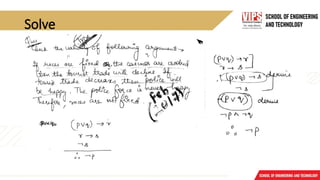 Solve
VIPS SCHOOL OF ENGINEERING
AND TECHNOLOGY
the validity of following argument
If races are fixed or the casinos are
then the tourist trade will decline. If
trade decreases, then police will
be happy. The police force is never happy.
Therefore races are not fixed.
(p∨q) → r
r → s
¬s
∴ ¬p
(p∨q) → r
r → s
(p∨q) → s
¬s
¬(p∨q)
¬p ∧ ¬q
∴ ¬p
SCHOOL OF ENGINEERING AND TECHNOLOGY